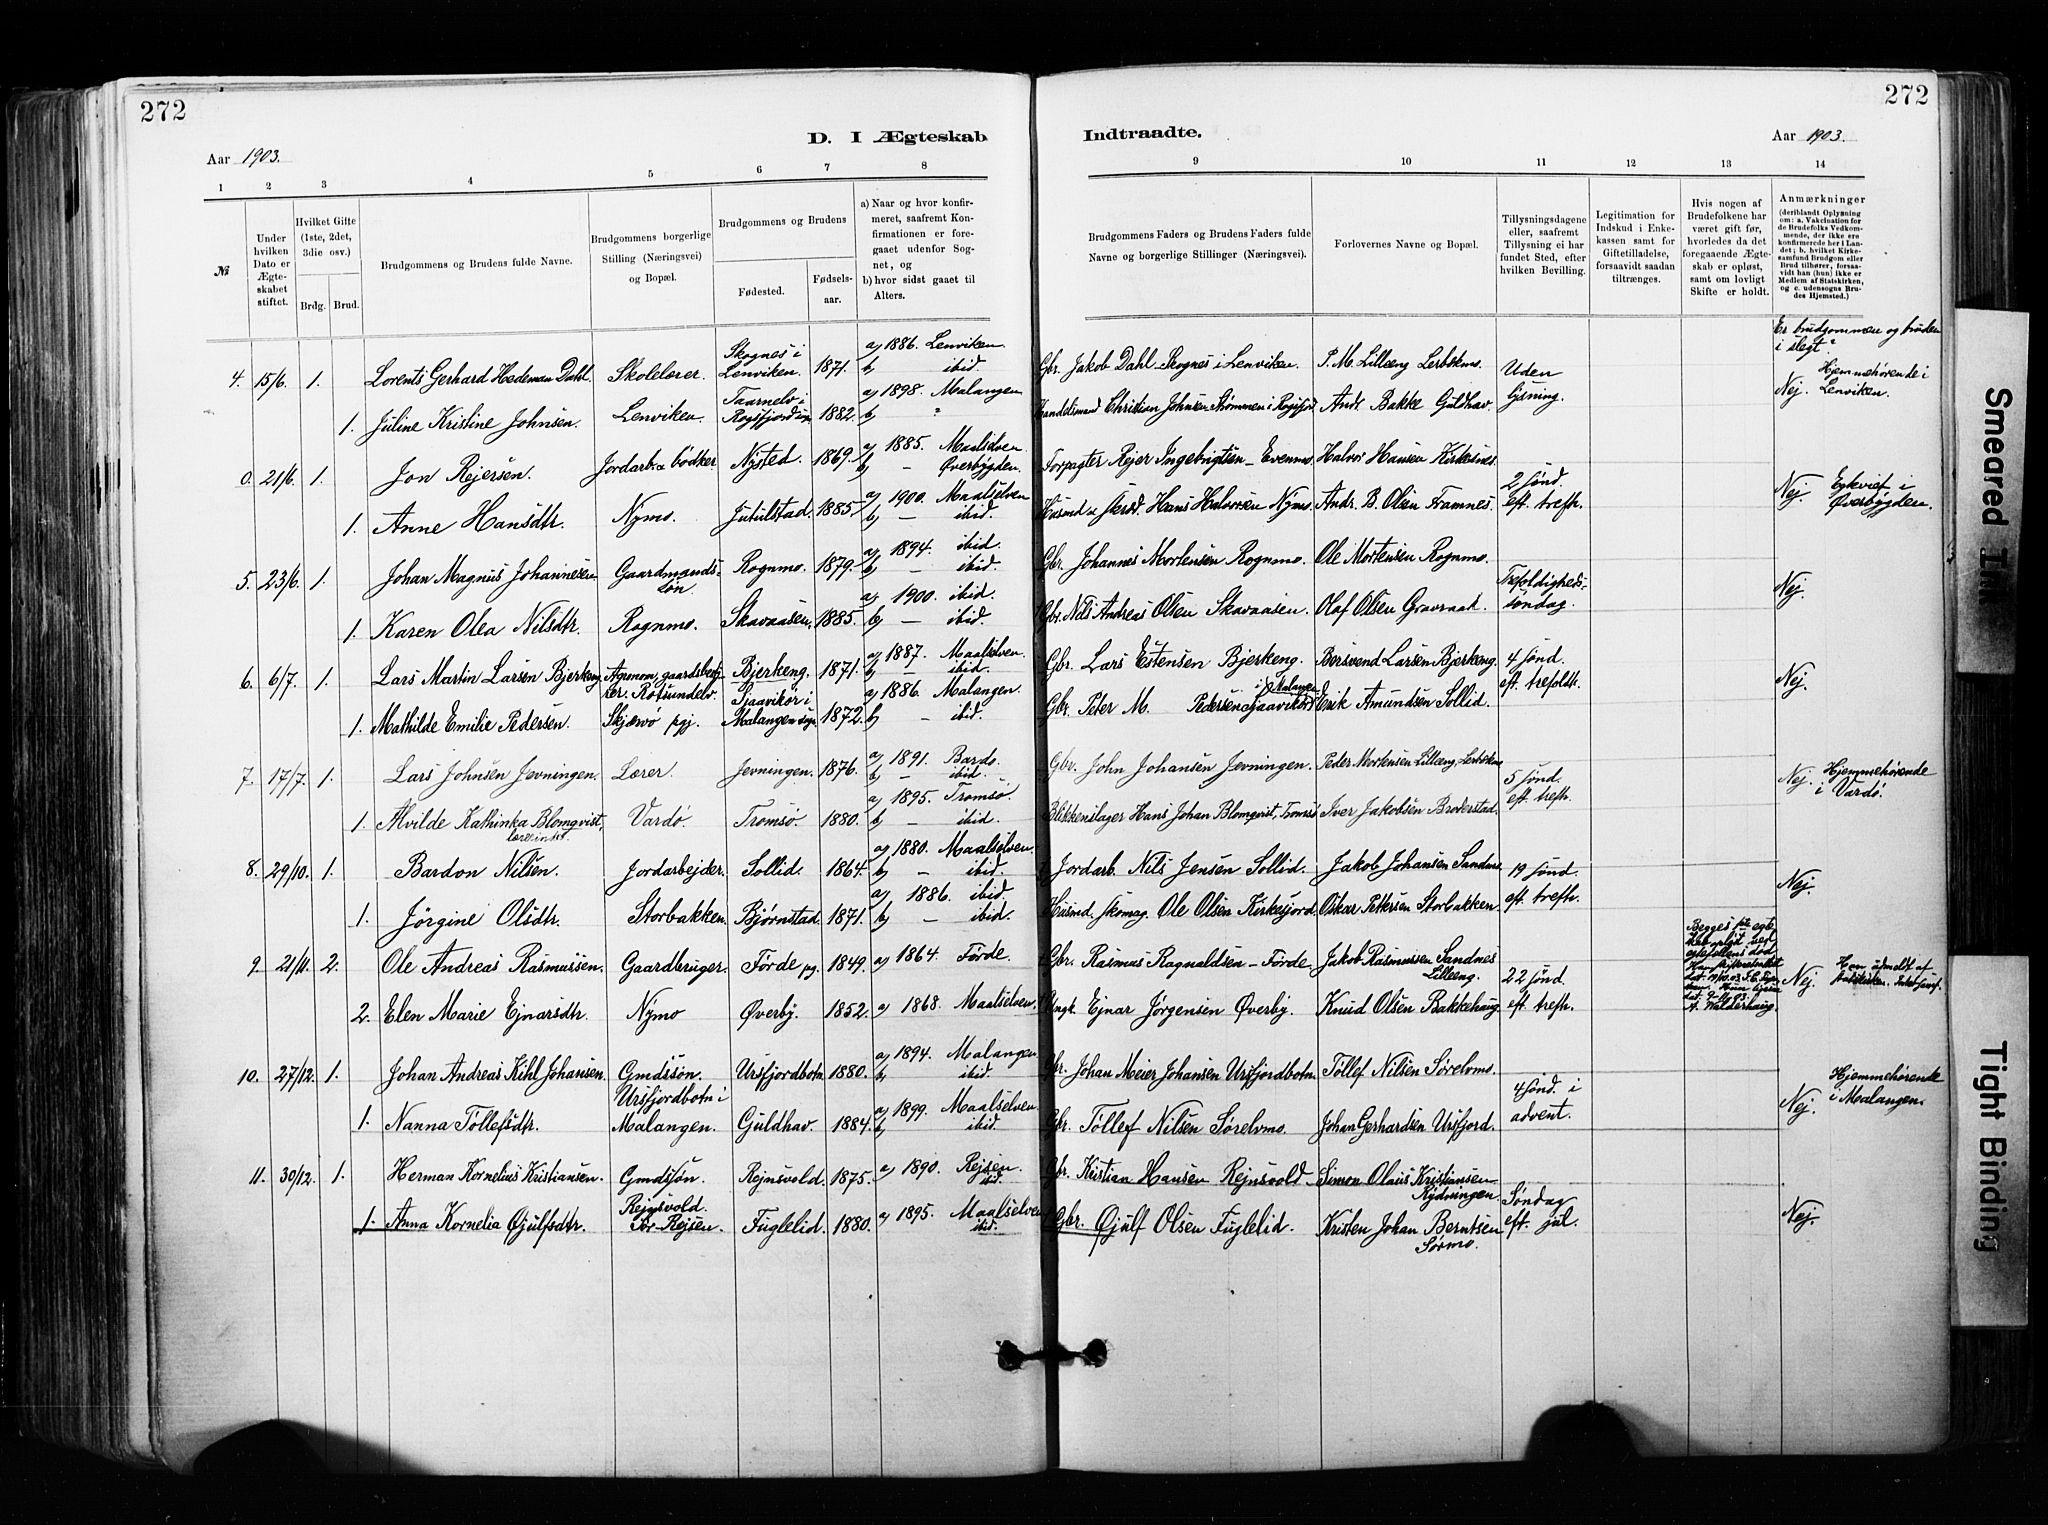 272
272
D. I Ægteskab
Indtraadte.
Aar 1903.
Aar 1903.
1 2 3 4 5 6 7 8 9 10 11 12 13 14
№
Under hvilken Dato er Ægteskabet stiftet.
Hvilket Gifte (1ste, 2det, 3die osv.)
Brdg. Brud.
Brudgommens og Brudens fulde Navne.
Brudgommens borgerlige Stilling (Næringsvei) og Bopæl.
Brudgommens og Brudens
Fødested.
Fødselsaar.
a) Naar og hvor konfirmeret, saafremt Konfirmationen er foregaaet udenfor Sognet, og
b) hvor sidst gaaet til Alters.
Brudgommens Faders og Brudens Faders fulde Navne og borgerlige Stillinger (Næringsvei).
Forlovernes Navne og Bopæl.
Tillysningsdagene eller, saafremt Tillysning ei har fundet Sted, efter hvilken Bevilling.
Legitimation for Indskud i Enkekassen samt for Giftetilladelse, forsaavidt saadan tiltrænges.
Hvis nogen af Brudefolkene har været gift før, hvorledes da det foregaaende Ægteskab er opløst, samt om lovligt Skifte er holdt.
Anmærkninger
(deriblandt Oplysning om: a. Vakcination for de Brudefolks Vedkommende, der ikke ere konfirmerede her i Landet; b. hvilket Kirkesamfund Brudgom eller Brud tilhører, forsaavidt han (hun) ikke er Medlem af Statskirken, og c. udensogns Brudes Hjemsted.)
Er brudgommen og bruden i slegt?
4. 15/6. 1. Lorents Gerhard Hedeman Dahl. Skolelærer. Skognes i Lenviken. 1871. a) 1886. Lenviken b) ibid. Gbr. Jakob Dahl - Skognes i Lenviken. P. M. Lilleeng Uden lysning. Nej. Hjemmehørende i Lenviken.
1. Juline Kristine Johnsen. Lenviken. Taarnelv i 1882. a) 1898. Malangen b) " Handelsmand Christian Johnsen Strømmen i Andr. Bakke Guldhav.
0. 21/6. 1. Jon Rejersen. Jordarb. & bødker Nysted. 1869. a) 1885. Maalselven b) — Øverbygden. Forpagter Rejer Ingebrigtsen - Evenmo. Halvor Hansen Kirkesnes. 2 sønd. eft. trefh. Nej. Øverbygden.
1. Anne Hansdtr. Nymo. Jutulstad. 1885. a) 1900. Maalselven b) — ibid. Husmd. & skræd. Hans Halvorsen Nymo. Andr. B. Olsen Framnes.
5. 23/6. 1. Johan Magnus Johannesen Gaardmandssøn Rognmo. 1879. a) 1894. ibid. b) — ibid. Gbr. Johannes Mortensen Rognmo. Ole Mortensen Rognmo. Trefoldighedssøndag. Nej.
1. Karen Olea Nilsdtr. Rognmo. Skavaasen. 1885. a) 1900. ibid. b) — ibid. Gbr. Nils Andreas Olsen Skavaasen. Olaf Olsen Gravraak.
6. 6/7. 1. Lars Martin Larsen Bjerkeng Agronom, gaardsbestyrer. Rotsundelv. Bjerkeng. 1871. a) 1887. Maalselven b) — ibid. Gbr. Lars Estensen Bjerkeng. Bersvend Larsen Bjerkeng. 4 sønd. eft. trefoldt. Nej.
1. Mathilde Emilie Pedersen. Skjærvø pgj. Sjaavikør i Malangen sogn. 1872. a) 1886. Malangen. b) — ibid. Gbr. Peter M. Pedersen Sjaavikør i Malangen Erik Amundsen Sollid.
7. 17/7. 1. Lars Johnsen Jevningen. Lærer. Jevningen. 1876. a) 1891. Bardo. b) — ibid. Gbr. John Johansen Jevningen. Peder Mortensen Lilleeng, 5 sønd. eft. trefh. Nej. Hjemmehørende i Vardø.
1. Alvilde Kathinka Blomqvist, lærerinde. Vardø. Tromsø. 1880. a) 1895. Tromsø. b) — ibid. Blikkenslager Hans Johan Blomqvist, Tromsø Iver Jakobsen Broderstad.
8. 29/10. 1. Bardon Nilsen. Jordarbejder. Sollid. 1864. a) 1880. Maalselven. b) — ibid. Jordarb. Nils Jensen Sollid. Jakob Johansen Sandmo. 19 sønd. eft. trefh. Nej.
1. Jørgine Olsdtr. Storbakken. Bjørnstad. 1871. a) 1886. ibid. b) — ibid. Husmd. skomag. Ole Olsen Kirkesjord. Oskar Pettersen Storbakken.
9. 21/11. 2. Ole Andreas Rasmussen. Gaardbruger. Førde pg. 1849. a) 1864. Førde. Gbr. Rasmus Ragnaldsen - Førde. Jakob Rasmussen Sandnes Lilleeng. 22 sønd. eft. trefh. Begges A. Walderhaug. Nej.
2. Elen Marie Ejnarsdtr. Nymo Øverby. 1852. a) 1868. Maalselven. Ejnar Jørgensen Øverby. Knud Olsen Bakkehaug.
10. 27/12. 1. Johan Andreas Kihl Johansen. Gmdssøn. Ursfjordbotn. 1880. a) 1894. Malangen. b) ibid. Gbr. Johan Meier Johansen Ursfjordbotn. Tøllef Nilsen Sørelvmo. 4 sønd. i advent. Nej. Hjemmehørende i Malangen.
1. Nanna Tøllefsdtr. Ursfjordbotn i Malangen. Guldhav. 1884. a) 1899. Maalselven. b) ibid. Gbr. Tøllef Nilsen Sørelvmo. Johan Gerhardsen Ursfjord.
11. 30/12. 1. Herman Kornelius Kristiansen. Gmdssøn. Rejnsvold. 1875. a) 1890. Rejsen. ibid. Gbr. Kristian Hansen Rejnsvold. Simon Olaus Kristiansen Rydningen. Søndag eft. jul. Nej.
1. Anna Kornelia Øjulfsdtr. Rejnsvold. Sør-Rejsen. Fuglelid. 1880. a) 1895. Maalselven. ibid. Gbr. Øjulf Olsen Fuglelid. Kristen Johan Berntsen Sørmo.
Smeared Ink
Tight Binding